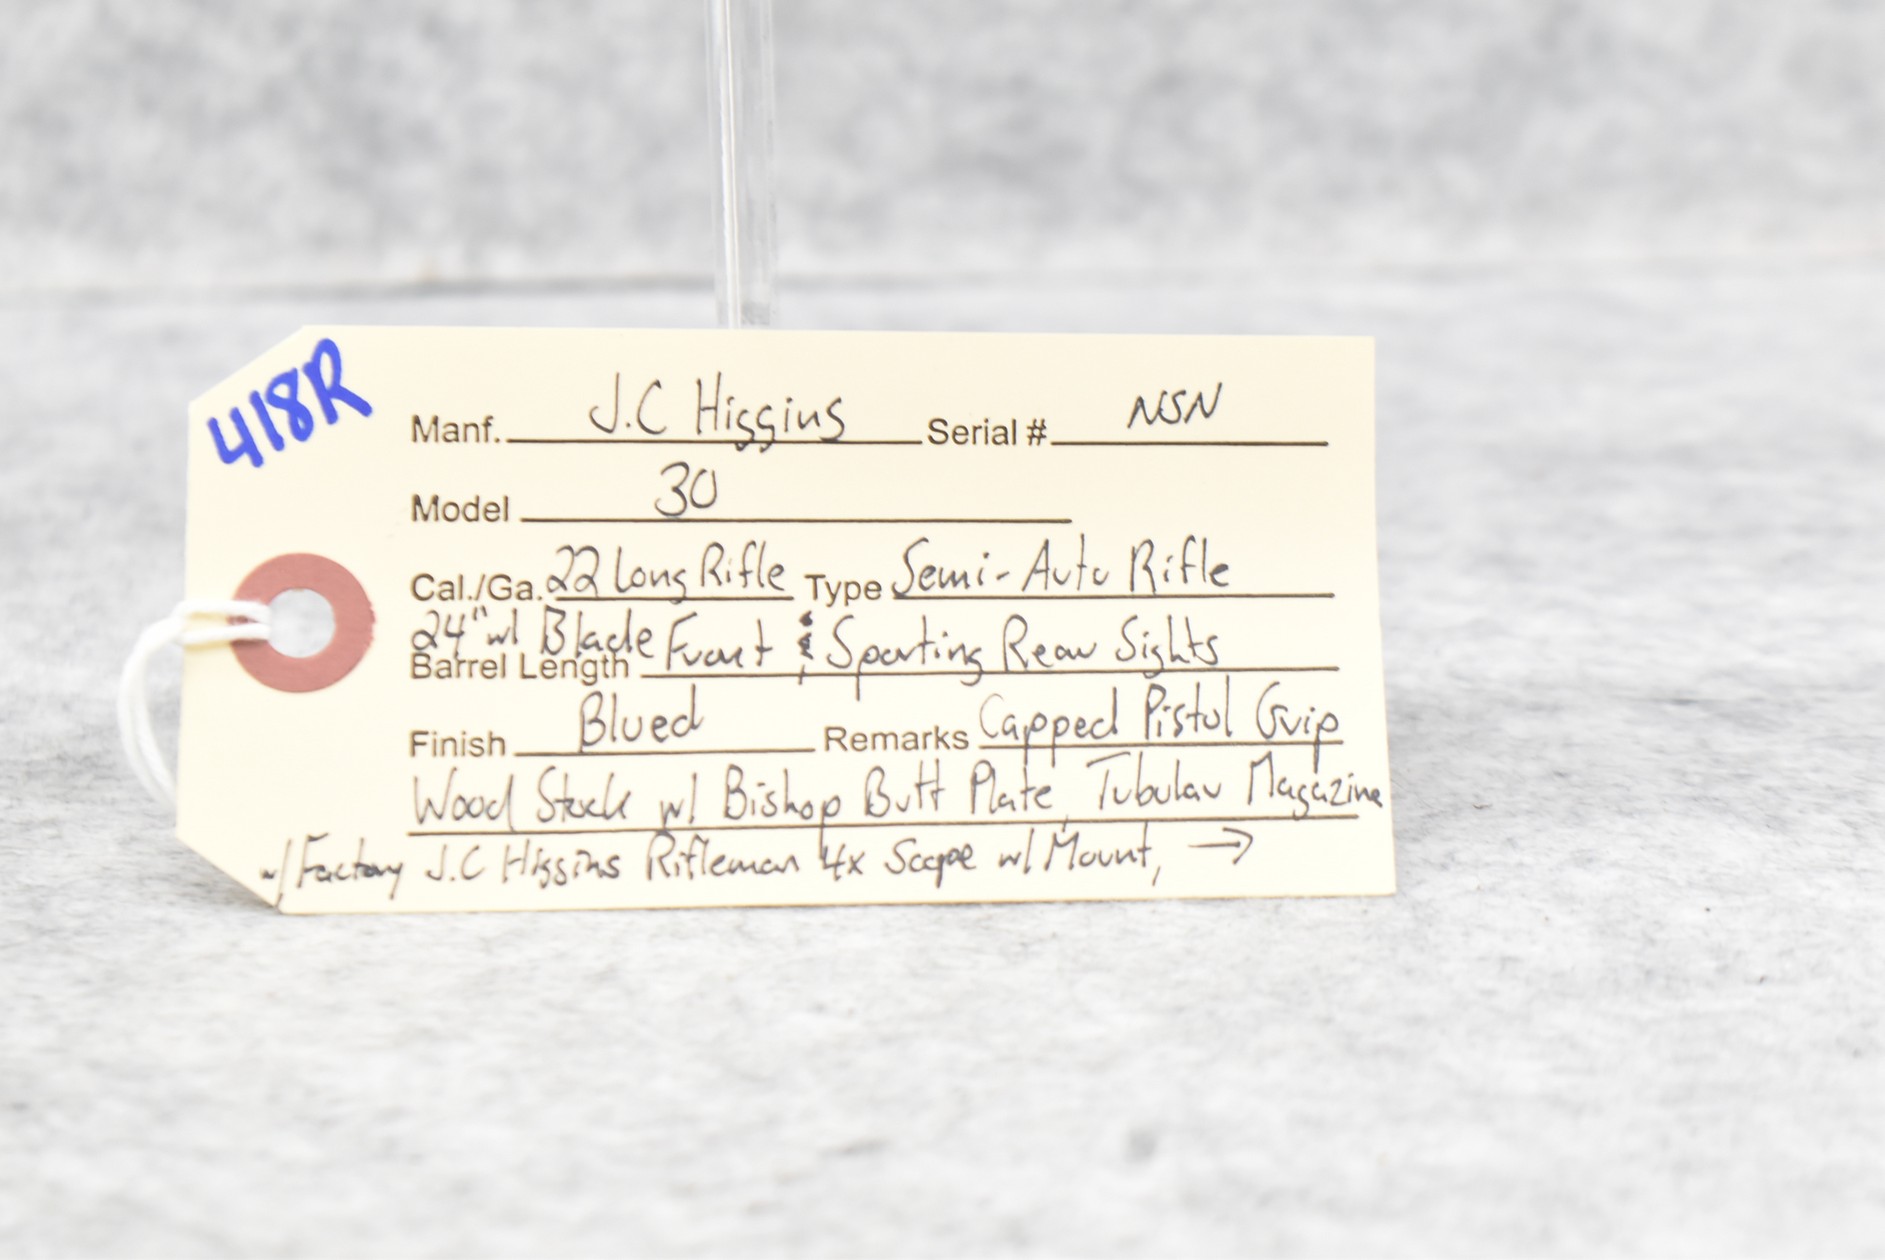 418R
Manf. J.C Higgins Serial # NSN
Model 30
Cal./Ga. 22 Long Rifle Type Semi-Auto Rifle
Barrel Length 24" w/ Blade Front & Sporting Rear Sights
Finish Blued Remarks Capped Pistol Grip
Wood Stock w/ Bishop Butt Plate, Tubular Magazine
w/ Factory J.C Higgins Rifleman 4x Scope w/ Mount, →